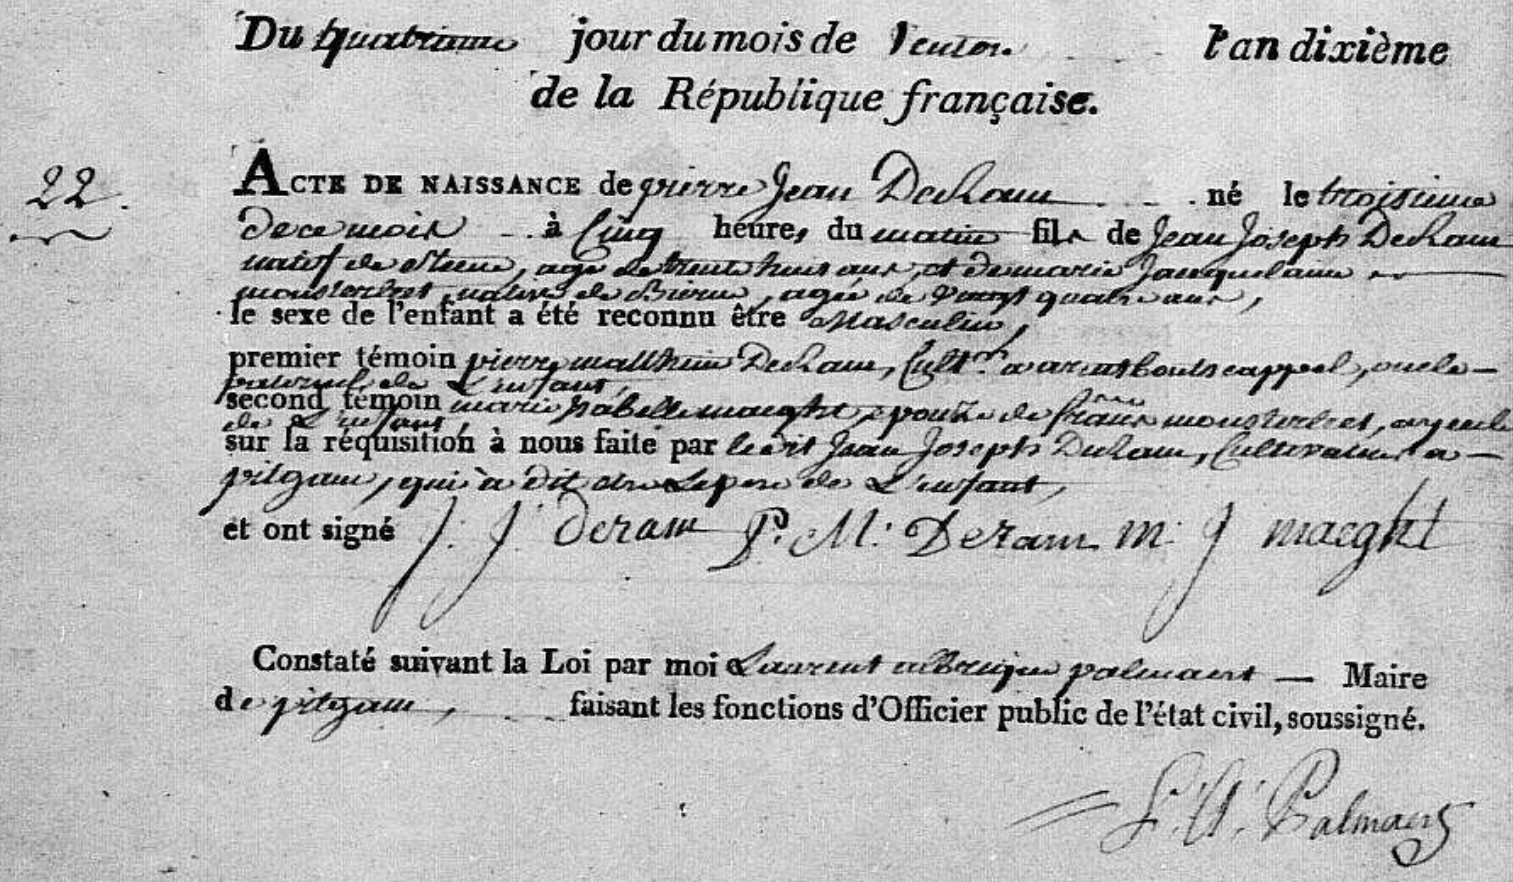 Du quatrieme jour du mois de Ventose l'an dixième
de la République française.
22.
ACTE DE NAISSANCE de pierre Jean DeRam né le troisieme
de ce mois à Cinq heures du matin fils de Jean Joseph DeRam
natif de Steene, agé de trente huit ans, et de marie Jacquelaine
monsterlret, native de Bierne, agée de vingt quatre ans,
le sexe de l'enfant a été reconnu être Masculin,
premier témoin pierre matthieu DeRam, Cultr. a arembouts cappel, oncle
paternel de L'enfant,
second témoin marie isabelle maeght, epouse de françois monsterlret, ayeule
de L'enfant,
sur la réquisition à nous faite par ledit Jean Joseph DeRam, Cultivateur a
pitgam, qui à dit etre Le pere de L'enfant,
et ont signé J. J. deram P. M. Deram m. J maeght
Constaté suivant la Loi par moi Laurent albrique palmaert Maire
de pitgam, faisant les fonctions d'Officier public de l'état civil, soussigné.
L. A. Palmaert